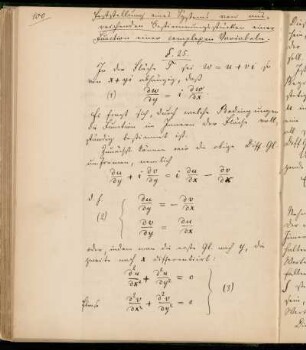 100.
Feststellung eines Systems von
Bestimmungsstücken einer
Function einer complexen Variabeln.
§. 25.
In der Fläche T sei w = u + vi so
von x + yi abhängig, daß
(1) ∂w/∂y = i ∂w/∂x
Es fragt sich, durch welche Bedingungen
die Function im Innern der Fläche voll-
ständig bestimmt ist.
Zunächst können wir die obige Diff. Gl.
umformen, nemlich
∂u/∂y + i ∂v/∂y = i ∂u/∂x − ∂v/∂x
d. h.
(2) { ∂u/∂y = − ∂v/∂x
∂v/∂y = ∂u/∂x
oder, indem man die erste Gl. nach y, die
zweite nach x differentiirt:
∂²u/∂x² + ∂²u/∂y² = 0
ebenso ∂²v/∂x² + ∂²v/∂y² = 0 } (3)